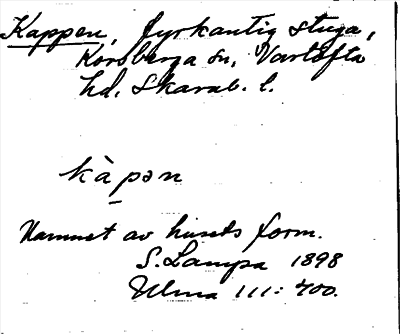 Kappen, fyrkantig stuga,
Korsberga sn, Vartofta
hd, Skarab. l.
kàpən
Namnet av husets form.
S. Lampa 1898
Ulma 111: 700.